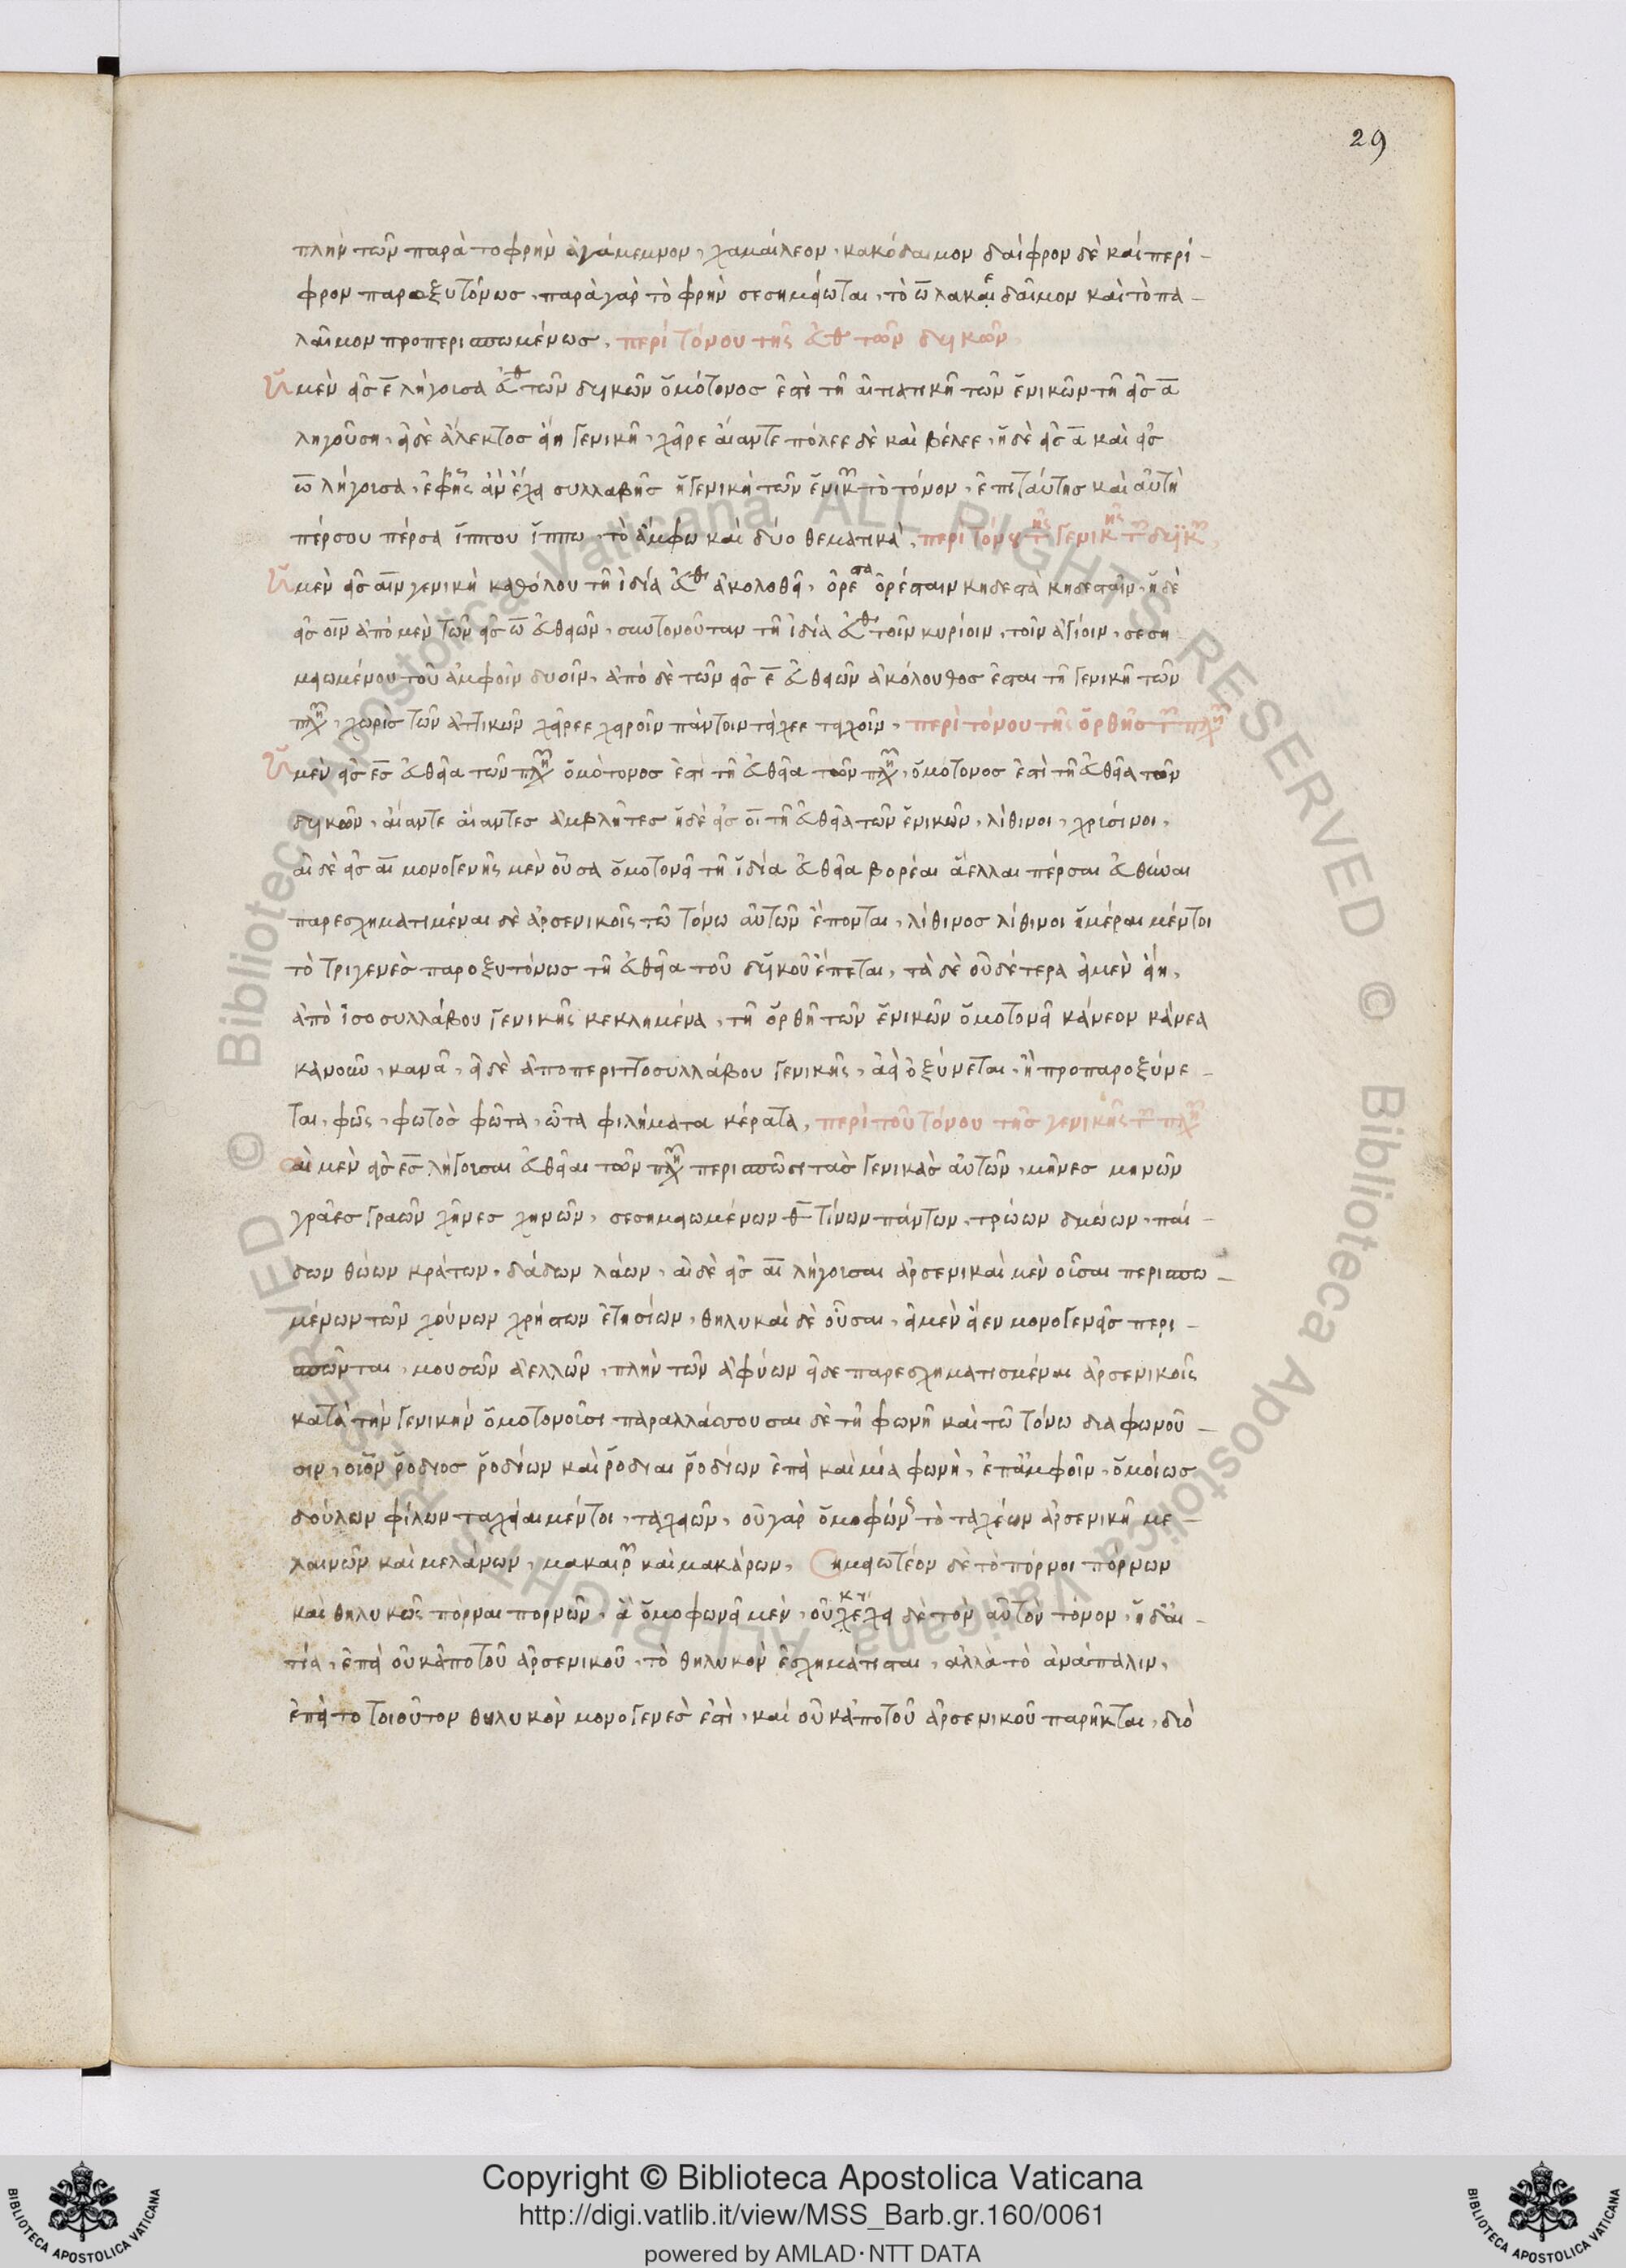 29
πλὴν τῶν παρὰ το φρὴν ἀγάμεμνον, χαμαίλεον, κακόδαιμον δαίφρον δὲ καὶ περί-
φρον παροξυτόνωσ, παρὰ γὰρ τὸ φρὴν σεσημείωται, τὸ ὦ λακεδαῖμον καὶ τὸ πα-
λαῖμον προπερισπωμένωσ, περὶ τόνου τῆς εὐθ τῶν δυικῶν
Ἡ μὲν εἰσ ε λήγουσα εὐθ τῶν δυικῶν ὁμότονοσ ἐστὶ τῆ αἰτιατικῆ τῶν ἑνικῶν τῆ εἰσ α
ληγούση, εἰ δὲ ἄλεκτοσ εἴη γενικῆ, χεῖρε αἴαντε πόλεε δὲ καὶ βέλεε, ἡ δὲ εἰσ α καὶ εἰσ
ω λήγουσα, ἐφῆς ἂν ἔχει συλλαβῆσ ἡ γενικὴ τῶν ἑνικ τὸ τόνον, ἐπι ταύτησ καὶ αὐτὴ
πέρσου πέρσα ἵππου ἵππω, τὸ ἄμφω καὶ δύο θεματικὰ, περὶ τόνου τῆς γενικῆς τ δυϊκ
Ἡ μὲν εἰσ αιν γενικὴ καθόλου τῆ ἰδία εὐθ ἀκολοθεῖ, ὀρέστα ὀρέσταιν κηδεστὰ κηδεσταῖν, ἡ δὲ
εἰσ οιν ἀπὸ μὲν τῶν εἰσ ω εὐθειῶν, συντονοῦται τῆ ἰδία εὐθ τοῖν κυρίοιν, τοῖν ἁγίοιν, σεση
μειωμένου τοῦ ἀμφοῖν δυοῖν, ἀπὸ δὲ τῶν εἰσ ε εὐθειῶν ἀκόλουθοσ ἔσται τῆ γενικῆ τῶν
πλη, χωρὶσ τῶν ἀττικῶν χεῖρεε χειροῖν πάντοιν τείχεε τειχοῖν, περὶ τόνου τῆς ὀρθῆσ τ πλη
Ἡ μὲν εἰσ εσ εὐθεῖα τῶν πλη ὁμότονοσ ἐστὶ τῆ εὐθεῖα τῶν πλη, ὁμότονοσ ἐστὶ τῆ εὐθεῖα τῶν
δυικῶν, αἴαντε αἴαντεσ ἀμβλῆτεσ ἡ δὲ εἰσ οι τῆ εὐθεῖα τῶν ἑνικῶν, λίθινοι, χρύσινοι,
αἱ δὲ εἰσ αι μονογενῆς μὲν οὖσα ὁμοτονεῖ τῆ ἰδία εὐθεῖα βορέαι ἄελλαι πέρσαι εὐθύναι
παρεσχηματιμέναι δὲ ἀρσενικοῖς τῶ τόνω αὐτῶν ἕπονται, λίθινοσ λίθινοι ἡμέραι μέντοι
τὸ τριγενὲσ παροξυτόνωσ τῆ εὐθεῖα τοῦ δυϊκοῦ ἕπεται, τὰ δὲ οὐδέτερα εἰ μὲν εἴη,
ἀπὸ ἰσοσυλλάβου γενικῆς κεκλημένα, τῆ ὀρθῆ τῶν ἑνικῶν ὁμοτονεῖ κάνεον κάνεα
κανοῦν, κανᾶ, εἰ δὲ ἀπο περιττοσυλλάβου γενικῆς, ἀεὶ ὀξύνεται, ἢ προπαροξύνε-
ται, φῶς, φωτὸσ φῶτα, ὦτα φιλήματα κέρατα, περὶ τοῦ τόνου τῆσ γενικῆς τ πλη
αἱ μὲν εἰσ εσ λήγουσαι εὐθεῖαι τῶν πλη περισπῶσι τὰσ γενικὰσ αὐτῶν, μῆνεσ μηνῶν
γρᾶεσ γραῶν χῆνεσ χηνῶν, σεσημειωμένων τίνων πάντων, τρώων δμώων, παί-
δων θώων κράτων, δάδων λάων, αἱ δὲ εἰσ αι λήγουσαι ἀρσενικαὶ μὲν οὖσαι περισπω-
μένων τῶν χούνων χρήστων ἐτησίων, θηλυκαὶ δὲ οὖσαι, εἰ μὲν εἶεν μονογενεῖσ περι-
σπῶνται, μουσῶν ἀελλῶν, πλὴν τῶν ἀφύων εἰ δε παρεσχηματισμέναι ἀρσενικοῖς
κατὰ τὴν γενικὴν ὁμοτονοῦσι παραλλάσσουσαι δὲ τῆ φωνῆ καὶ τῶ τόνω διαφωνοῦ-
σιν, οἷον ῥόδιοσ ῥοδίων καὶ ῥόδιαι ῥοδίων ἐπεὶ καὶ μία φωνὴ, ἐπάμφοῖν, ὁμοίωσ
δούλων φίλων ταχεῖαι μέντοι, ταχειῶν, οὐ γὰρ ὁμοφών τὸ ταχέων ἀρσενικῆ με-
λαινῶν καὶ μελάνων, μακαιρ καὶ μακάρων, Σημειωτέον δὲ τὸ πόρνοι πόρνων
και θηλυκῶς πόρναι πορνῶν, ἃ ὁμοφωνεῖ μὲν, οὐκ ἔχει δὲ τὸν αὐτὸν τόνον, ἡ δὲ αἰ-
τία, ἐπεὶ οὐκ ἀπο τοῦ ἀρσενικοῦ, τὸ θηλυκὸν ἐσχημάτισται, ἀλλὰ τὸ ἀνάπαλιν,
ἐπεὶ το τοιοῦτον θηλυκὸν μονογενέσ ἐστὶ, καὶ οὐκ ἀπο τοῦ ἀρσενικοῦ παρῆκται, διὸ
Copyright © Biblioteca Apostolica Vaticana
http://digi.vatlib.it/view/MSS_Barb.gr.160/0061
powered by AMLAD·NTT DATA